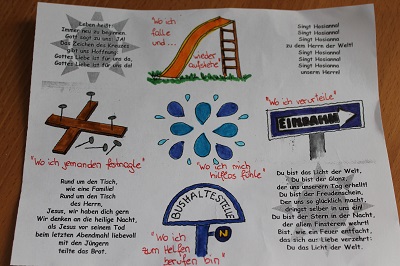 Leben heißt:
Immer neu zu beginnen.
Gott sagt zu uns: JA!
Das Zeichen des Kreuzes
gibt uns Hoffnung:
Gottes Liebe ist für uns da,
Gottes Liebe ist für die da!
"Wo ich
falle
und ...
wieder
aufstehe"
Singt Hosianna!
Singt Hosianna!
Singt Hosianna
zu dem Herrn der Welt!
Singt Hosianna!
Singt Hosianna!
Singt Hosianna
unserm Herrn!
"Wo ich verurteile"
EINBAHN
"Wo ich jemanden festnagle"
"Wo ich mich
hilflos fühle"
Rund um den Tisch,
wie eine Familie!
Rund um den Tisch
des Herrn,
Jesus, wir haben dich gern
Wir denken an die heilige Nacht,
als Jesus vor seinem Tod
beim letzten Abendmahl liebevoll
mit den Jüngern
teilte das Brot.
BUSHALTESTELLE
N
"Wo ich
zum Helfen
berufen bin"
Du bist das Licht der Welt,
Du bist der Glanz,
der uns unseren Tag erhellt!
Du bist der Freudenschein,
Der uns so glücklich macht,
dringst selber in uns ein!
Du bist der Stern in der Nacht,
der allem Finsteren wehrt!
Bist, wie ein Feuer entfacht,
das sich aus Liebe verzehrt:
Du das Licht der Welt.